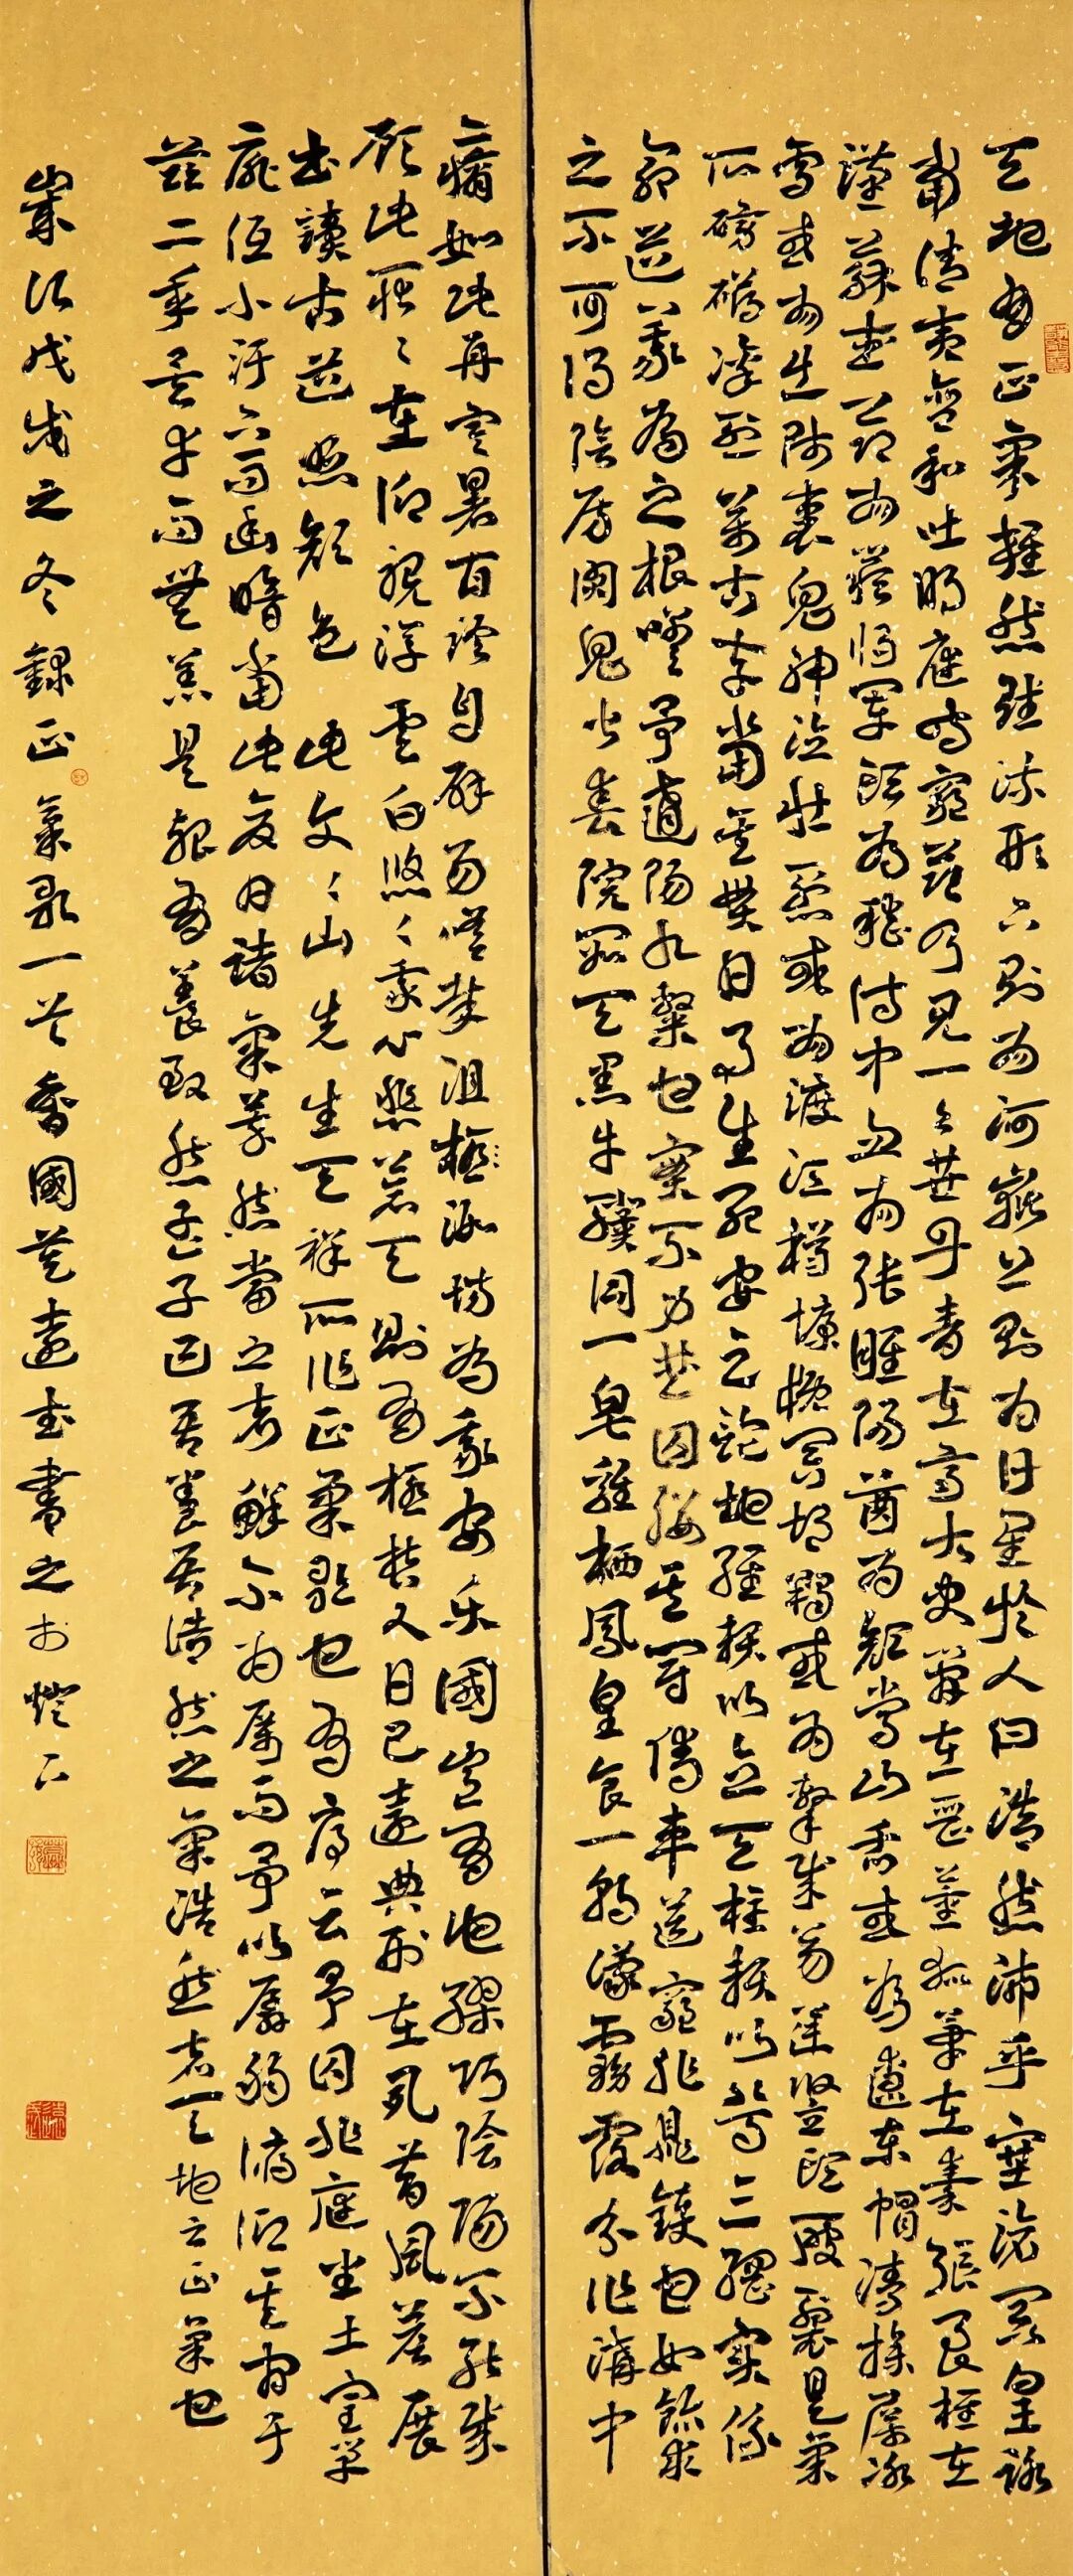 天地有正氣雜然賦流形下則為河嶽上則為日星於人曰浩然沛乎塞滄冥皇路
當清夷含和吐明庭時窮節乃見一一垂丹青在齊太史簡在晉董狐筆在秦張良椎在
漢蘇武節為嚴將軍頭為嵇侍中血為張睢陽齒為顏常山舌或為遼東帽清操厲冰
雪或為出師表鬼神泣壯烈或為渡江楫慷慨吞胡羯或為擊賊笏逆豎頭破裂是氣
所磅礴凜烈萬古存當其貫日月生死安足論地維賴以立天柱賴以尊三綱實係
命道義為之根嗟予遘陽九隸也實不力楚囚纓其冠傳車送窮北鼎鑊甘如飴求
之不可得陰房闃鬼火春院閟天黑牛驥同一皂雞栖鳳皇食一朝濛霧露分作溝中
瘠如此再寒暑百沴自辟易嗟哉沮洳場為我安樂國豈有他繆巧陰陽不能賊
顧此耿々在仰視浮雲白悠々我心悲蒼天曷有極哲人日已遠典刑在夙昔風簷展
書讀古道照顏色 此文々山先生天祥所作正氣歌也有序云予囚北庭坐土室單
扉低小汙下而幽暗當此夏日諸氣萃然當之者鮮不為厲而予以孱弱俯仰其間于
茲二年矣幸而無恙是殆有養致然孟子曰吾善養吾浩然之氣浩然者天地之正氣也
歲次戊戌之冬錄正氣歌一首香國遠志書之於燈下